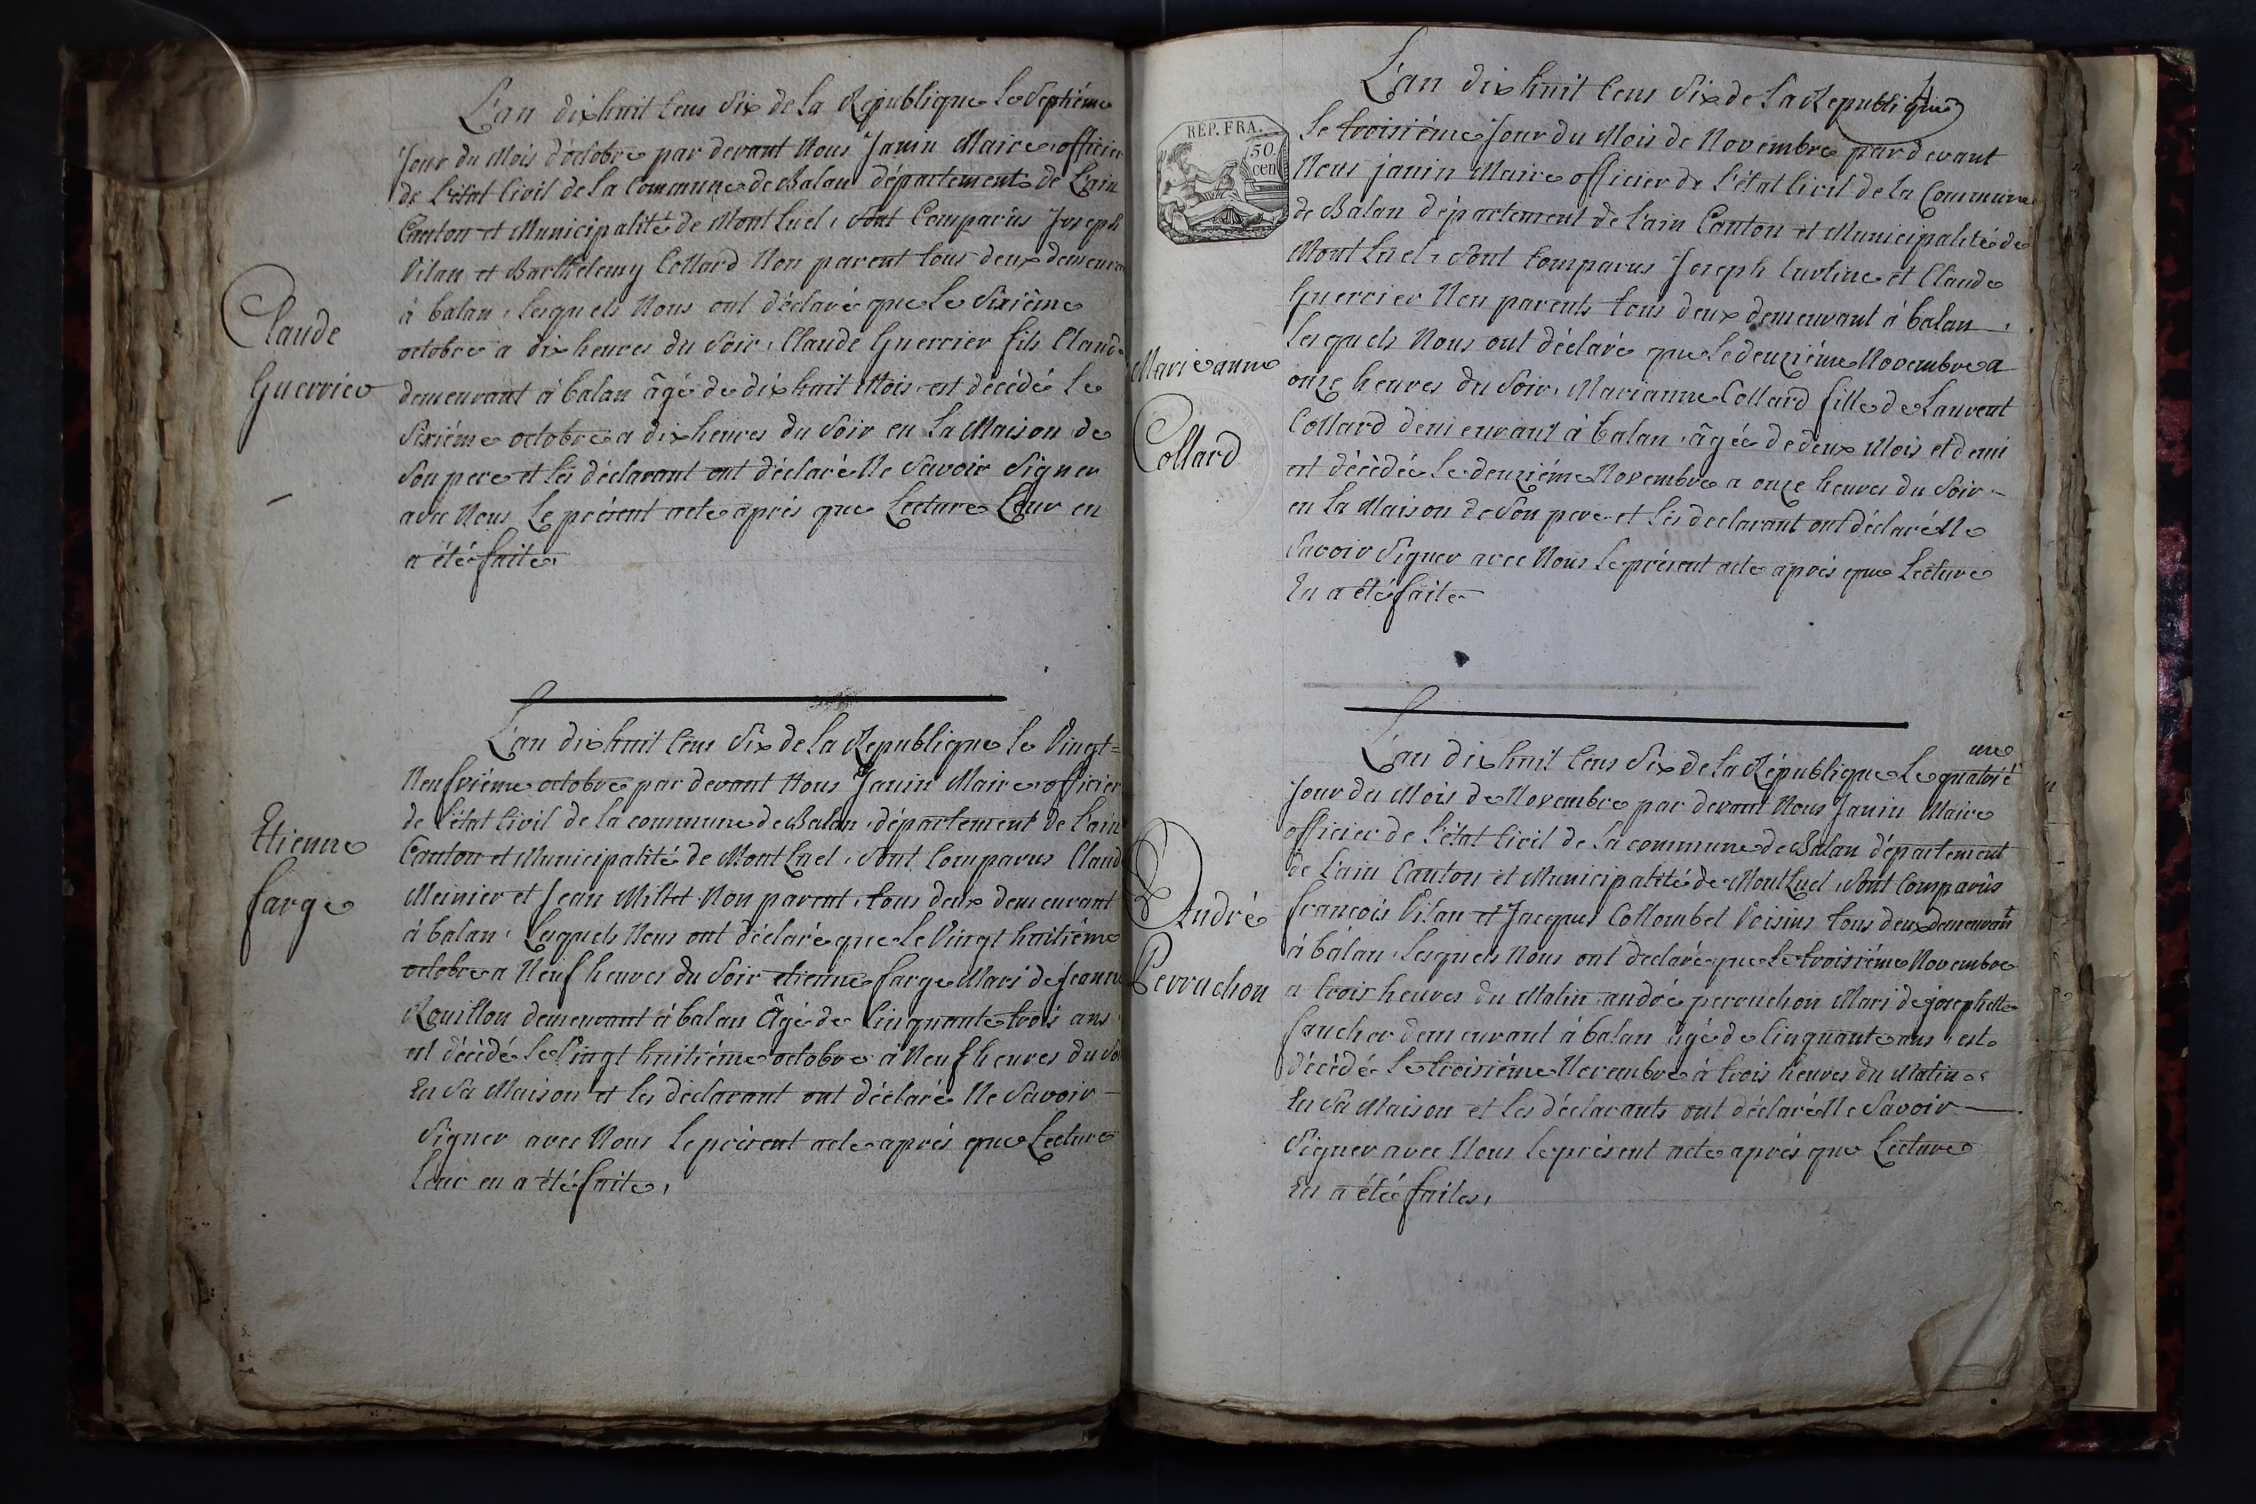 L'an dix huit cens Six de la République le Septiéme
Jour du Mois d'octobre par devant Nous Janin Maire officier
de L'état Civil de la Commune de Balan département de L'ain
Canton et Municipalité de Mont Luel, Sont Comparûs Joseph
Vilan et Barthelemy Collard Non parent tous deux demeurant
à balan, Lesquels Nous ont déclaré que le Sixiéme
octobre a dix heures du Soir, Claude Guerrier fils Claude
demeurant à balan âgé de dix huit Mois est décédé le
Sixiéme octobre a dix heures du Soir en La Maison de
Son pere et les déclarant ont déclaré Ne Savoir Signer
avec Nous Le présent acte après que Lecture Leur en
a été faite,
Claude
Guerrier
L'an dix huit cens Six de la République le Vingt=
Neufviéme octobre par devant Nous Janin Maire officier
de L'état Civil de la commune de Balan, département de L'ain
Canton et Municipalité de Mont Luel, Sont Comparus Claude
Meinier et Jean Millet Non parent, tous deux demeurant
à balan, Lesquels Nous ont déclaré que le Vingt huitiéme
octobre a Neuf heures du Soir etienne farge Mari de Jeanne
Rouillon demeurant à balan Âgé de Cinquante trois ans
est décédé le Vingt huitiéme octobre à Neuf heures du So
En Sa Maison et les déclarant ont déclaré Ne Savoir
Signer avec Nous le présent acte après que Lecture
Leur en a été faite,
Etienne
farge
4
RÉP. FRA.
50
cen
L'an dix huit cens Six de La Republique
le troisiéme Jour du Mois de Novembre par devant
Nous janin Maire officier de L'état Civil de la Commune
de Balan département de L'ain Canton et Municipalité de
Mont Luel, Sont Comparus Joseph Curtine et Claude
Guerrier Non parents tous deux demeurant à balan,
Lesquels Nous ont déclaré que le deuxiéme Novembre a
onze heures du Soir, Marianne Collard fille de Laurent
Collard demeurant à balan, âgée de deux Mois et demi
est décèdée le deuxiéme Novembre a onze heures du Soir
en La Maison de Son pere et les declarant ont déclaré Ne
Savoir Signer avec Nous le présent acte après que Lecture
En a été faite
Marieanne
Collard
L'an dix huit cens Six de la République Le quatrié
me
Jour du Mois de Novembre par devant Nous Janin Maire
officier de L'état Civil de La commune de Balan département
de L'ain Canton et Municipalité de Mont Luel, Sont Comparûs
françois Vilan et Jacques Collombet Voisins tous deux demeurant
à balan, Lesquels Nous ont declaré que le troisiéme Novembre
a trois heures du Matin andré perruchon Mari de josephette
faucher demeurant à balan âgé de Cinquante ans, est
décédé Le troisiéme Novembre à trois heures du Matin
En Sa Maison et les déclarants ont déclaré Ne Savoir
Signer avec Nous le présent acte après que Lecture
En a été faite,
André
Perruchon